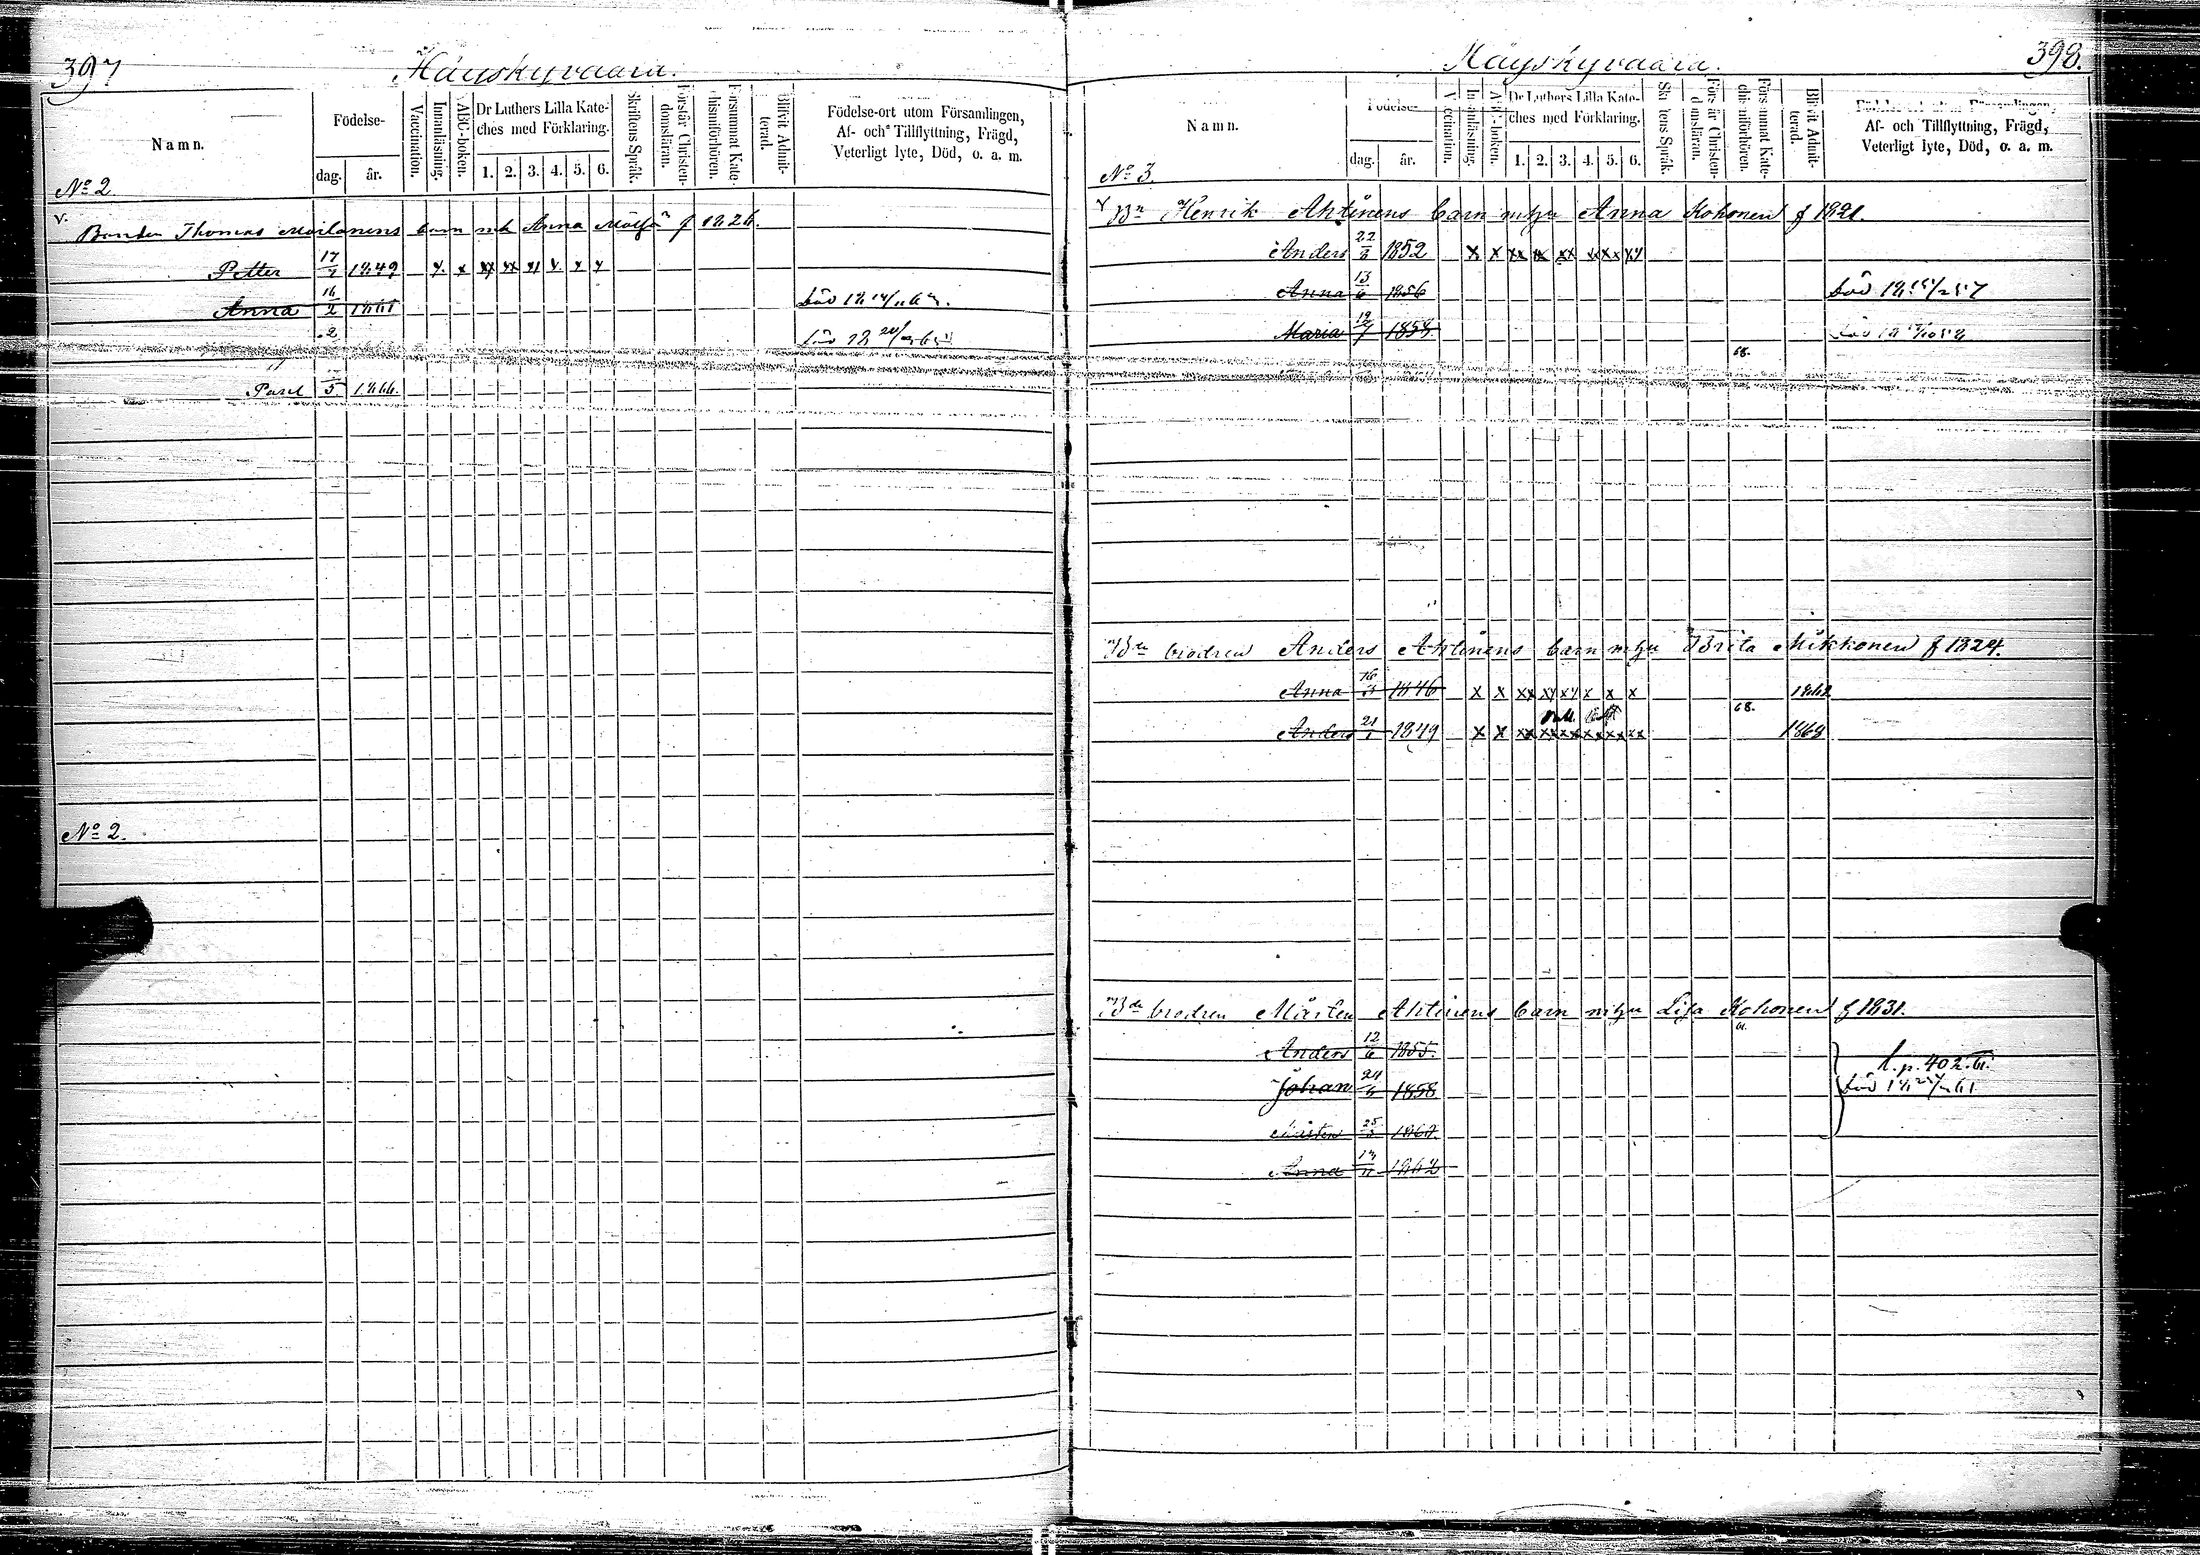 397
Häyskyvaara.
Namn.
Födelse-
dag.
år.
Vaccination.
Innanläsning.
ABC-boken.
Dr Luthers Lilla Kate-
ches med Förklaring.
1. 2. 3. 4. 5. 6.
Skriftens Språk.
Förstår Christen-
domsläran.
Försummat Kate-
chismiförhören.
Blifvit Admit-
terad.
Födelse-ort utom Församlingen,
Af- och Tillflyttning, Frägd,
Veterligt lyte, Död, o. a. m.
No 2.
v. Bonden Thomas Moilanens barn mh Anna f 1826.
Petter 17/7 1849 x x xx xx xx x x x
Anna 16/2 1861 död
2 död
Pavel 5 1866.
No 2.
398.
Häyskyvaara.
Namn.
Födelse-
dag.
år.
Vaccination.
Innanläsning.
ABC-boken.
Dr Luthers Lilla Kate-
ches med Förklaring.
1. 2. 3. 4. 5. 6.
Skriftens Språk.
Förstår Christen-
domsläran.
Försummat Kate-
chismiförhören.
Blifvit Admit-
terad.
Födelse-ort utom Församlingen,
Af- och Tillflyttning, Frägd,
Veterligt lyte, Död, o. a. m.
No 3.
v Bn Henrik Ahtinens barn mhu Anna Kohonen f 1821.
Anders 22/8 1852 x x xx xx xx xx xx xx
Anna 13/6 1856 död
Maria 12/7 1858 död
68.
Bde brodren Anders Ahtinens barn mhu Brita Mikkonen f 1824.
Anna 16 1846 x x xx xx xx x x x 1862
68.
Anders 21/1 1849 x x xx xx xx xx xx xx 1868
Bde brodren Mårten Ahtinens barn mhu Lisa Kohonen f 1831.
61.
Anders 12/6 1855.
l. p. 402
Johan 24 1858 död
Mårten 25
Anna 1862